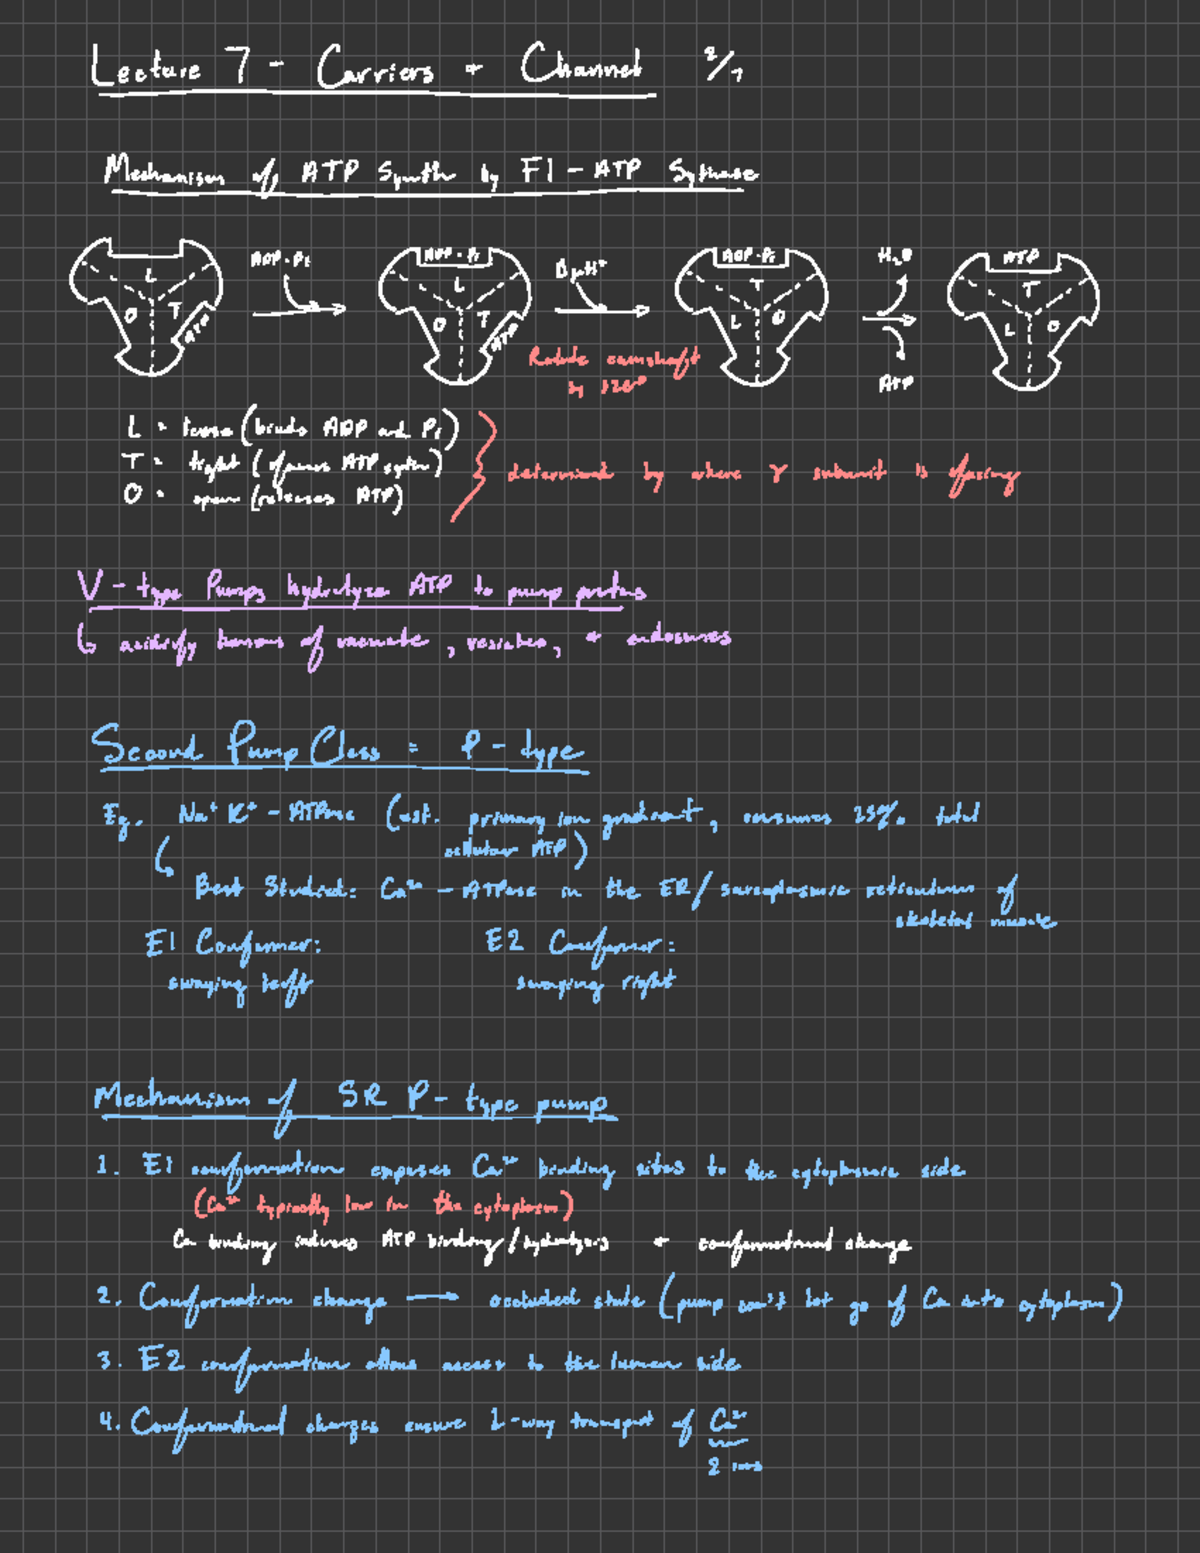 Lecture 7 - Carriers + Channel 2/7
Mechanism of ATP Synth by F1 - ATP Sythase
L O T ATP
ADP + Pi
ADP + Pi L O T ATP
ΔμH+
Rotate camshaft
by 120°
ADP + Pi T L O
H2O
ATP
ATP T L O
L = loose (binds ADP and Pi)
T = tight (forms ATP)
O = open (releases ATP)
determined by where γ subunit is facing
V - type Pumps hydrolyze ATP to pump protons
↳ acidify lumens of vacuole, vesicles, + endosomes
Second Pump Class = P - type
Eg. Na+ K+ - ATPase (est. primary ion gradient, consumes 25% total
cellular ATP)
↳ Best Studied: Ca2+ - ATPase in the ER / sarcoplasmic reticulum of
skeletal muscle
E1 Conformer: E2 Conformer:
swaying left swaying right
Mechanism of SR P - type pump
1. E1 conformation exposes Ca2+ binding sites to the cytoplasmic side
(Ca2+ typically low in the cytoplasm)
Ca binding induces ATP binding/hydrolysis + conformational change
2. Conformation change → occluded state (pump can't let go of Ca into cytoplasm)
3. E2 conformation allows access to the lumen side
4. Conformational changes ensure 1-way transport of Ca2+
2 ions